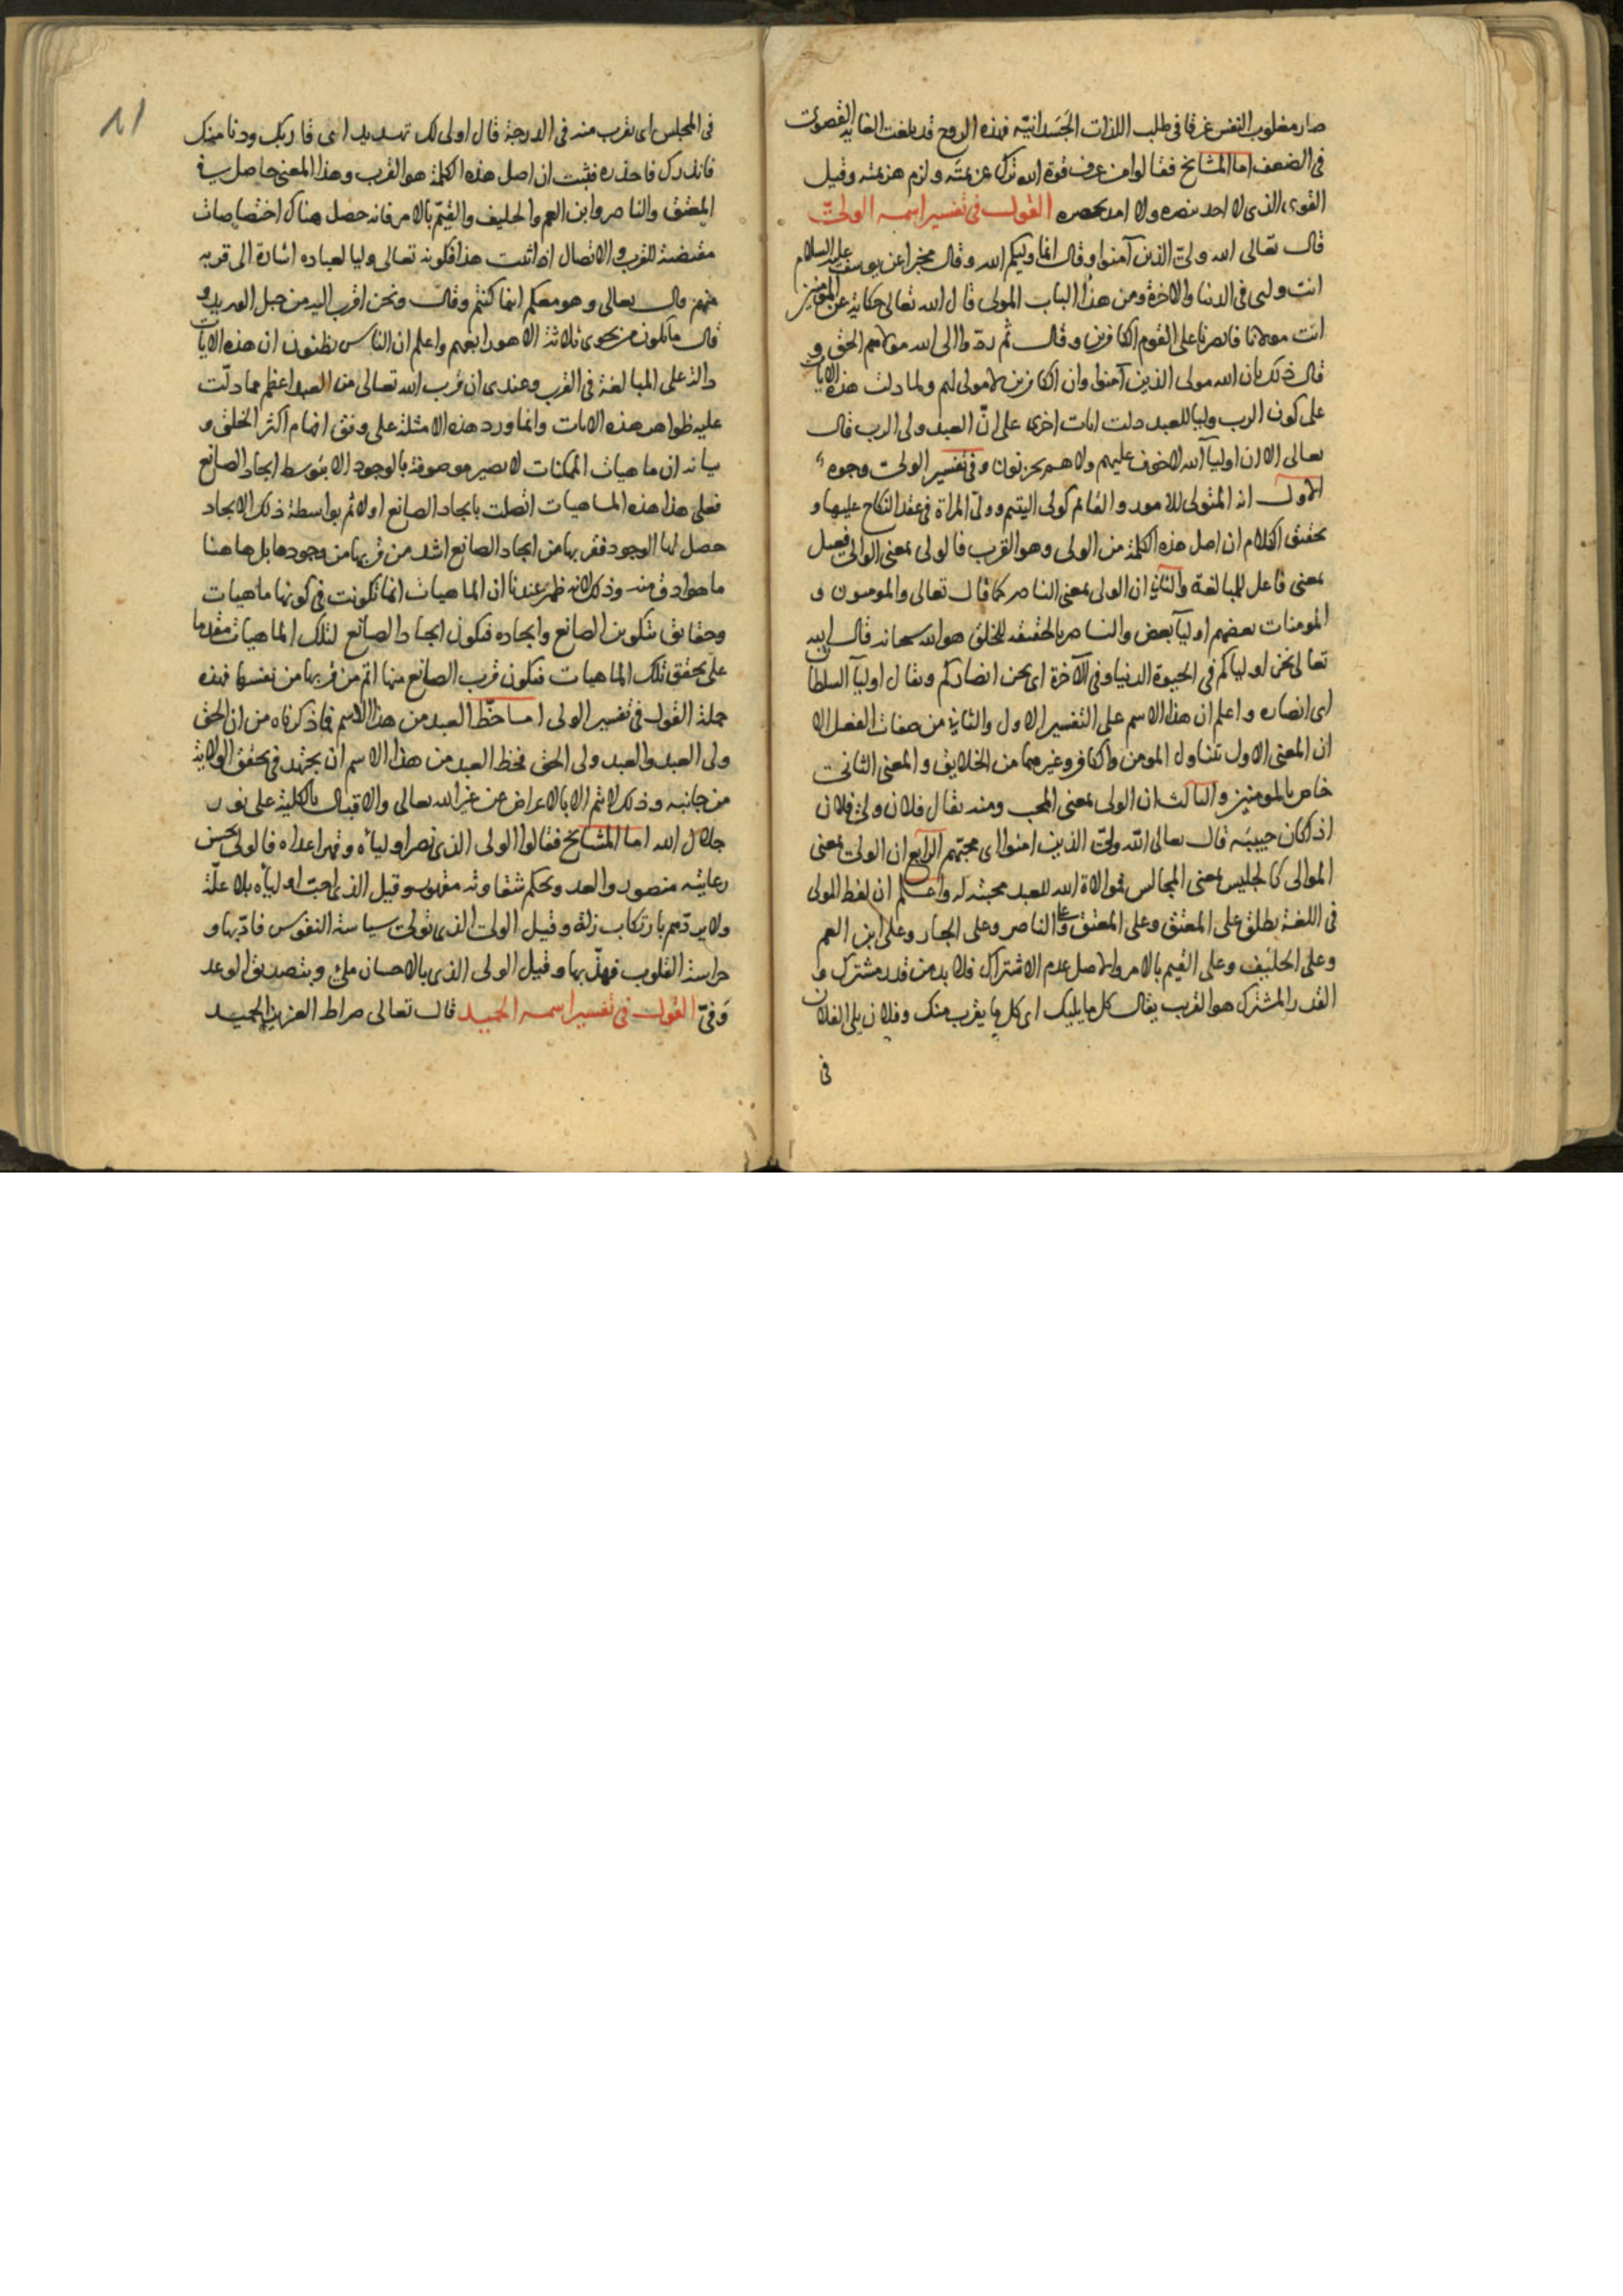 صار مغلوب النفس غرقا فى طلب اللذات الجسدانية فهذه الروح قد بلغت الغاية القصوى
فى الضعف اما المشايخ فقالوا من عرف قوة الله ترك عزيمته ولزم هزيمته وقيل
القوى الذى لا احد ينصره ولا امد يحصره القول فى تفسير اسمه الولى
قال تعالى الله ولى الذين آمنوا وقال انما وليكم الله وقال مخبرا عن يوسف عليه السلام
انت ولى فى الدنيا والاخرة ومن هذا الباب المولى قال الله تعالى حكاية عن المومنين
انت مولانا فانصرنا على القوم الكافرين وقال ثم ردوا الى الله مولاهم الحق و
قال ذلك بان الله مولى الذين آمنوا وان الكافرين لا مولى لهم ولما دلت هذه الايات
على كون الرب وليا للعبد دلت ايات اخرى على انّ العبد ولى الرب قال
تعالى الا ان اوليآ الله لا خوف عليهم ولا هم يحزنون وفى تفسير الولى وجوه
الاول انه المتولى للامور والقائم كولى اليتيم وولىّ المراة فى عقد النكاح عليها و
تحقيق الكلام ان اصل هذه الكلمة من الولى وهو القرب فالولى بمعنى الوالى فعيل
بمعنى فاعل للمبالغة والثانى ان الولى بمعنى الناصر كما قال تعالى والمومنون و
المومنات بعضهم اوليآ بعض والناصر بالحقيقة للخلق هو الله سبحانه قال الله
تعالى نحن اولياكم فى الحيوة الدنيا وفى الآخرة اى نحن انصاركم ويقال اوليآ السلطان
اى انصاره واعلم ان هذا الاسم على التفسير الاول والثانى من صفات الفعل الا
ان المعنى الاول يتناول المومن والكافر وغيرهما من الخلايق والمعنى الثانى
خاص بالمومنين والثالث ان الولى بمعنى المحب ومنه يقال فلان ولى فلان
اذا كان حبيبه قال تعالى الله ولىّ الذين امنوا اى محبهم الرابع ان الولى بمعنى
الموالى كالجليس بمعنى المجالس فموالاة الله للعبد محبته له واعلم ان لفظ المولى
فى اللغة يطلق على المعتق وعلى المعتق وعلى الناصر وعلى الجار وعلى ابن العم
وعلى الحليف وعلى القيم بالامر والاصل عدم الاشتراك فلا بد من قدر مشترك و
القدر المشترك هو القرب يقال كل ما يليك اى كل ما يقرب منك وفلان يلى الفلان
فى
٨١
فى المجلس اى يقرب منه فى الدرجة قال اولى لك تهديد اى قاربك ودنا منك
فانذرك فاحذره فثبت ان اصل هذه الكلمة هو القرب وهذا المعنى حاصل فى
المعتق والناصر وابن العم والحليف والقيّم بالامر فانه حصل هناك اختصاصات
مقتضية للقرب والاتصال اذا ثبت هذا فكونه تعالى وليا لعباده اشارة الى قربه
منهم قال تعالى وهو معكم اينما كنتم وقال ونحن اقرب اليه من حبل الوريد و
قال ما يكون من نجوى ثلاثة الا هو رابعهم واعلم ان الناس يظنون ان هذه الايات
دالة على المبالغة فى القرب وعندى ان قرب الله تعالى من العبد اعظم مما دلّت
عليه ظواهر هذه الايات وانما ورد هذه الامثلة على وفق افهام اكثر الخلق و
بيانه ان ماهيات الممكنات لا تصير موصوفة بالوجود الا بتوسط ايجاد الصانع
فعلى هذا هذه الماهيات اتصلت بايجاد الصانع اولا ثم بواسطة ذلك الايجاد
حصل لها الوجود فقربها من ايجاد الصانع اشد من قربها من وجودها بل هاهنا
ما هو ادق منه وذلك لانه ظهر عندنا ان الماهيات انما تكونت فى كونها ماهيات
وحقايق بتكوين الصانع وايجاده فيكون ايجاد الصانع لتلك الماهيات مقدما
على تحقق تلك الماهيات فيكون قرب الصانع منها اتم من قربها من نفسها فهذه
جملة القول فى تفسير الولى اما حظّ العبد من هذا الاسم فما ذكرناه من ان الحق
ولى العبد والعبد ولى الحق فحظ العبد من هذا الاسم ان يجتهد فى تحقق الولاية
من جانبه وذلك لا يتم الا بالاعراض عن غير الله تعالى والاقبال بالكلية على نور
جلال الله اما المشايخ فقالوا الولى الذى نصر اولياه وقهر اعداه فالولى بحسن
رعايته منصور والعدو بحكم شقاوته مقهور وقيل الذى احبّ اولياه بلا علّة
ولا يردّهم بارتكاب زلة وقيل الولى الذى تولى سياسة النفوس فادّبها و
حراسة القلوب فهذّبها وقيل الولى الذى بالاحسان ملى وبتصديق الوعد
وَفىّ القول فى تفسير اسمه الحميد قال تعالى صراط العزيز الحميد